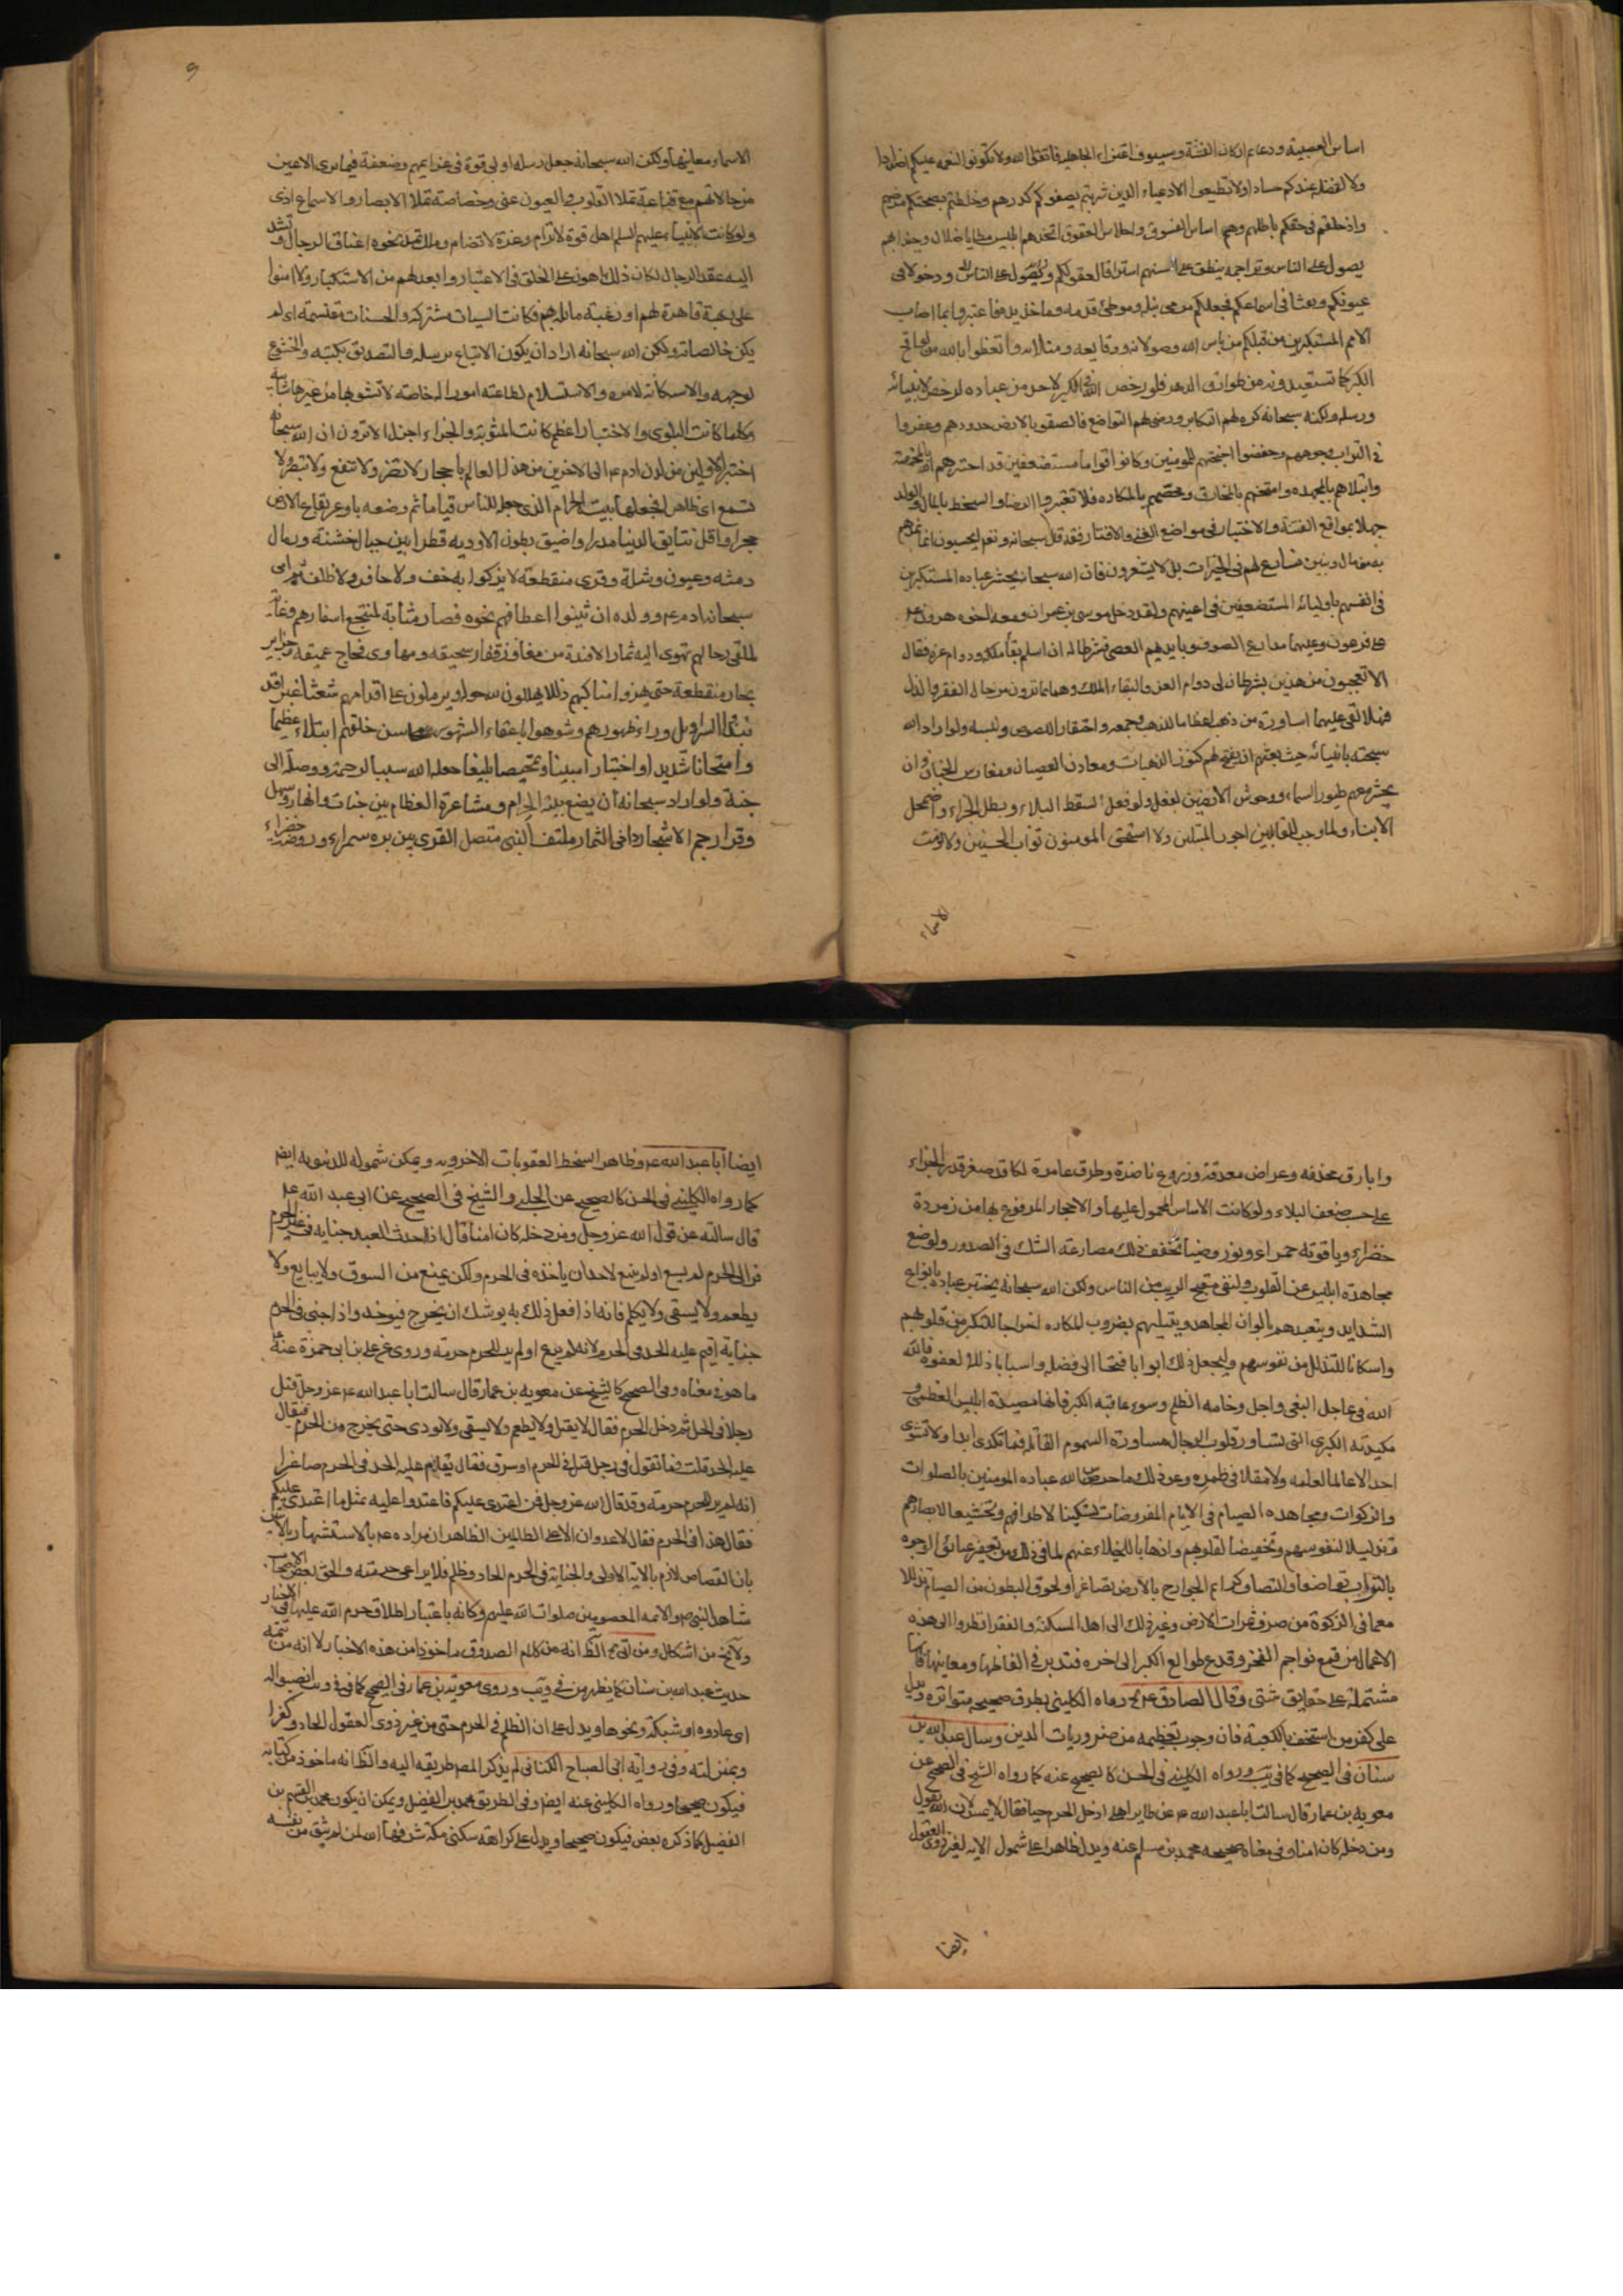 اساس العصبية ودعايم اركان الفتنة وسيوف اعتزاء الجاهلية فاتقوا الله ولا تكونوا لنعمه عليكم اضدادا
ولا لفضله عندكم حسادا ولا تطيعوا الادعياء الذين شربتم بصفوكم كدرهم وخلطتم بصحتكم مرضهم
وادخلتم فى حقكم باطلهم وهم اساس الفسوق واحلاس العقوق اتخذهم ابليس مطايا ضلال وجندا بهم
يصول على الناس وتراجمة ينطق على السنتهم استراقا لعقولكم ودخولا فى
عيونكم ونفثا فى اسماعكم فجعلكم مرمى نبله وموطئ قدمه وماخذ يده فاعتبروا بما اصاب
الامم المستكبرين من قبلكم من باس الله وصولاته ووقايعه ومثلاته واتعظوا بالله من لواقح
الكبر كما تستعيذونه من طوارق الدهر فلو رخص الله فى الكبر لاحد من عباده لرخص لانبيائه
ورسله ولكنه سبحانه كره لهم التكابر ورضى لهم التواضع فالصقوا بالارض خدودهم وعفروا
فى التراب وجوههم وخفضوا اجنحتهم للمومنين وكانوا اقواما مستضعفين قد اختبرهم الله بالمخمصة
وابتلاهم بالمجهدة وامتحنهم بالمخاوف ومخضهم بالمكاره فلا تعتبروا الرضا والسخط بالمال والولد
جهلا بمواقع الفتنة والاختبار فى مواضع الغنى والاقتار فقد قال سبحانه وتعم ايحسبون انما نمدهم
به من مال وبنين نسارع لهم فى الخيرات بل لا يشعرون فان الله سبحانه يختبر عباده المستكبرين
فى انفسهم باوليائه المستضعفين فى اعينهم ولقد دخل موسى بن عمران ومعه اخوه هرون ع
على فرعون وعليهما مدارع الصوف وبايديهم العصى فشرطا له ان اسلم بقاء ملكه ودوام عزه فقال
الا تعجبون من هذين يشرطان لى دوام العز والبقاء الملك وهما بما ترون من حال الفقر والذل
فهلا القى عليهما اساورة من ذهب اعظاما للذهب وجمعه واحتقارا للصوف ولبسه ولو اراد الله
سبحنه بانبيائه حيث بعثهم ان يفتح لهم كنوز الذهبان ومعادن العقيان ومغارس الجنان وان
يحشر معهم طيور السماء ووحوش الارضين لفعل ولو فعل لسقط البلاء وبطل الجزاء واضمحل
الانباء ولما وجب للقابلين اجور المبتلين ولا استحق المومنون ثواب المحسنين ولا لزمت
الاسماء
٩
الاسماء معانيها ولكن الله سبحانه جعل رسله اولى قوة فى عزايمهم وضعفة فيما ترى الاعين
من حالاتهم مع قناعة تملأ القلوب والعيون غنى وخصاصة تملأ الابصار والاسماع اذى
ولو كانت الانبياء عليهم السلم اهل قوة لا ترام وعزة لا تضام وملك تمد نحوه اعناق الرجال وتشد
اليه عقد الرحال لكان ذلك اهون على الخلق فى الاعتبار وابعد لهم من الاستكبار ولامنوا
على رهبة قاهرة لهم او رغبة مائلة بهم فكانت السيات مشتركة والحسنات مقتسمة اى لم
يكن خالصاته ولكن الله سبحانه اراد ان يكون الاتباع برسله والتصديق بكتبه والخشوع
لوجهه والاستكانة لامره والاستسلام لطاعته امورا له خاصة لا تشوبها من غيرها شائبة
وكلما كانت البلوى والاختبار اعظم كانت المثوبة والجزاء اجزل الا ترون ان الله سبحانه
اختبر الاولين من لدن ادم ع الى الاخرين من هذا العالم باحجار لا تضر ولا تنفع ولا تبصر ولا
تسمع اى ظاهرا فجعلها بيت الحرام الذى جعل للناس قياما ثم وضعه باوعر بقاع الارض
حجرا واقل نتايق الدنيا مدرا واضيق بطون الاودية قطرا بين جبال خشنة ورمال
دمثه وعيون وشلة وقرى منقطعة لا يزكوا به خف ولا حافر ولا ظلف ثم امر
سبحانه ادم ع وولده ان يثنوا اعطافهم نحوه فصار مثابة لمنتجع اسفارهم وغاية
لملقى رحالهم تهوى اليه ثمار الافئدة من مفاوز قفار سحيقه ومهاوى فجاج عميقه وجزاير
بحار منقطعة حتى يهزوا مناكبهم ذللا يهللون لله حوله ويرملون على اقدامهم شعثا غبرا قد
نبذوا السرابيل وراء ظهورهم وشوهوا باعفاء الشعور محاسن خلقهم ابتلاء عظيما
وامتحانا شديدا واختبارا مبينا وتمحيصا بليغا جعله الله سببا لرحمته ووصلة الى
جنته ولو اراد سبحانه ان يضع بيته الحرام ومشاعره العظام بين جنات وانهار وسهل
وقرار جم الاشجار دانى الثمار ملتف البنى متصل القرى بين بره سمراء وروضة خضراء
وارياف محدقه وعراص معدقة وزروع ناضرة وطرق عامرة لكان قد صغر قدر الجزاء
على حسب ضعف البلاء ولو كانت الاساس المحمول عليها والاحجار المرفوع بها من زمردة
خضراء وياقوته حمراء ونور وضياء لخفف ذلك مصارعة الشك فى الصدور ولوضع
مجاهدة ابليس عن القلوب ولنفى معتلج الريب من الناس ولكن الله سبحانه يختبر عباده بانواع
الشدايد ويتعبدهم بالوان المجاهد ويبتليهم بضروب المكاره اخراجا للتكبر من قلوبهم
واسكانا للتذلل من نفوسهم وليجعل ذلك ابوابا فتحا الى فضله واسبابا ذللا لعفوه فالله
الله فى عاجل البغى واجل وخامه الظلم وسوء عاقبه الكبر فانها مصيدة ابليس العظمى و
مكيدته الكبرى التى تساور قلوب الرجال مساورة السموم القاتلة فما تكدى ابدا ولا تشوى
احدا لا عالما لعلمه ولا مقلا فى طمره وعن ذلك ما حرس الله عباده المومنين بالصلوات
والزكوات ومجاهده الصيام فى الايام المفروضات تسكينا لاطرافهم وتخشيعا لابصارهم
وتذليلا لنفوسهم وتخفيضا لقلوبهم واذهابا للخيلاء عنهم لما فى ذلك من تعفير عتائق الوجوه
بالتراب تواضعا والتصاق كرائم الجوارح بالارض تصاغرا ولحوق البطون من الصيام تذللا
مع ما فى الزكوة من صرف ثمرات الارض وغير ذلك الى اهل المسكنة والفقر انظروا الى هذه
الافعال من قمع نواجم الفخر وقدع طوالع الكبر الى اخره فتدبر فى الفاظها ومعانيها فانها
مشتملة على حقايق شتى وقال الصادق ع رواه الكلينى بطرق صحيحه متواتره ويدل
على كفر من استخف بالكعبة فان وجوب تعظيمه من ضروريات الدين وسال عبد الله بن
سنان فى الصحيح كما فى يب ورواه الكلينى فى الحسن كالصحيح عنه كما رواه الشيخ فى الصحيح عن
معوية بن عمار قال سالت ابا عبد الله ع عن طاير اهلى ادخل الحرم حيا فقال لا يمس لان الله يقول
ومن دخله كان امنا وفى معناه صحيحه محمد بن مسلم عنه ويدل ظاهرا على شمول الايه لغير ذوى العقول
ايضا
ايضا ابا عبد الله ع وظاهر السخط العقوبات الاخرويه ويمكن شموله للدنيويه ايضا
كما رواه الكلينى فى الحسن كالصحيح عن الحلبى والشيخ فى الصحيح عن ابى عبد الله ع
قال سالته عن قول الله عز وجل ومن دخله كان امنا قال اذا احدث العبد جنايه فى غير الحرم ثم
فر الى الحرم لم يسع لاحد ان ياخذه فى الحرم ولكن يمنع من السوق ولا يبايع ولا
يطعم ولا يسقى ولا يكلم فانه اذا فعل ذلك به يوشك ان يخرج فيوخذ واذا جنى فى الحرم
جناية اقيم عليه الحد فى الحرم لانه لم يدع للحرم حرمة وروى عن على بن ابى حمزة عنه ع
ما هو فى معناه وفى الصحيح كالشيخ عن معويه بن عمار قال سالت ابا عبد الله ع عن رجل قتل
رجلا فى الحل ثم دخل الحرم فقال لا يقتل ولا يطعم ولا يسقى ولا يودى حتى يخرج من الحرم فيقام
عليه الحد قلت فما تقول فى رجل قتل فى الحرم او سرق فقال يقام عليه الحد فى الحرم صاغرا
انه لم ير للحرم حرمة وقد قال الله عز وجل فمن اعتدى عليكم فاعتدوا عليه بمثل ما اعتدى عليكم
فقال هذا فى الحرم فقال لا عدوان الا على الظالمين الظاهر ان مراده ع بالاستشهاد بالايتين
بان القصاص لازم بالايه الاولى والجناية فى الحرم الحاد وظلم فلا يراعى حرمته والحق بعض الاصحاب
مشاهد النبى ص والائمه المعصومين صلوات الله عليهم وكانه باعتبار اطلاق حرم الله عليها فى الاخبار
ولا يخ من اشكال ومن اتى الظ انه من كلام الصدوق ماخوذا من هذه الاخبار لا انه من تتمه
حديث عبد الله بن سنان كما يظهر من فى ويب وروى معوية بن عمار فى الصحيح كما فى فى ويب
اى عادوه او شبكة ونحوها ويدل على ان الظلم فى الحرم حتى من غير ذوى العقول الحاد وكفرا
وبمنزلته وفى رواية ابى الصباح الكنانى لم يذكر المصه طريقه اليه والظ انه ماخوذ من كتابه
فيكون صحيحا ورواه الكلينى عنه ايضا وفى الطريق محمد بن الفضيل ويمكن ان يكون محمد بن القسم بن
الفضيل كما ذكره بعض فيكون صحيحا ويدل على كراهة سكنى مكة شرفها الله لمن لم يثق من نفسه